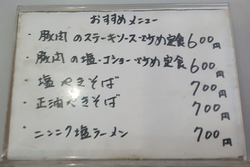 おすすめメニュー
・豚肉のステーキソースで炒め定食 600円
・豚肉の塩・コショーで炒め定食 600円
・塩やきそば 700円
・正油やきそば 700円
・ニンニク塩ラーメン 700円